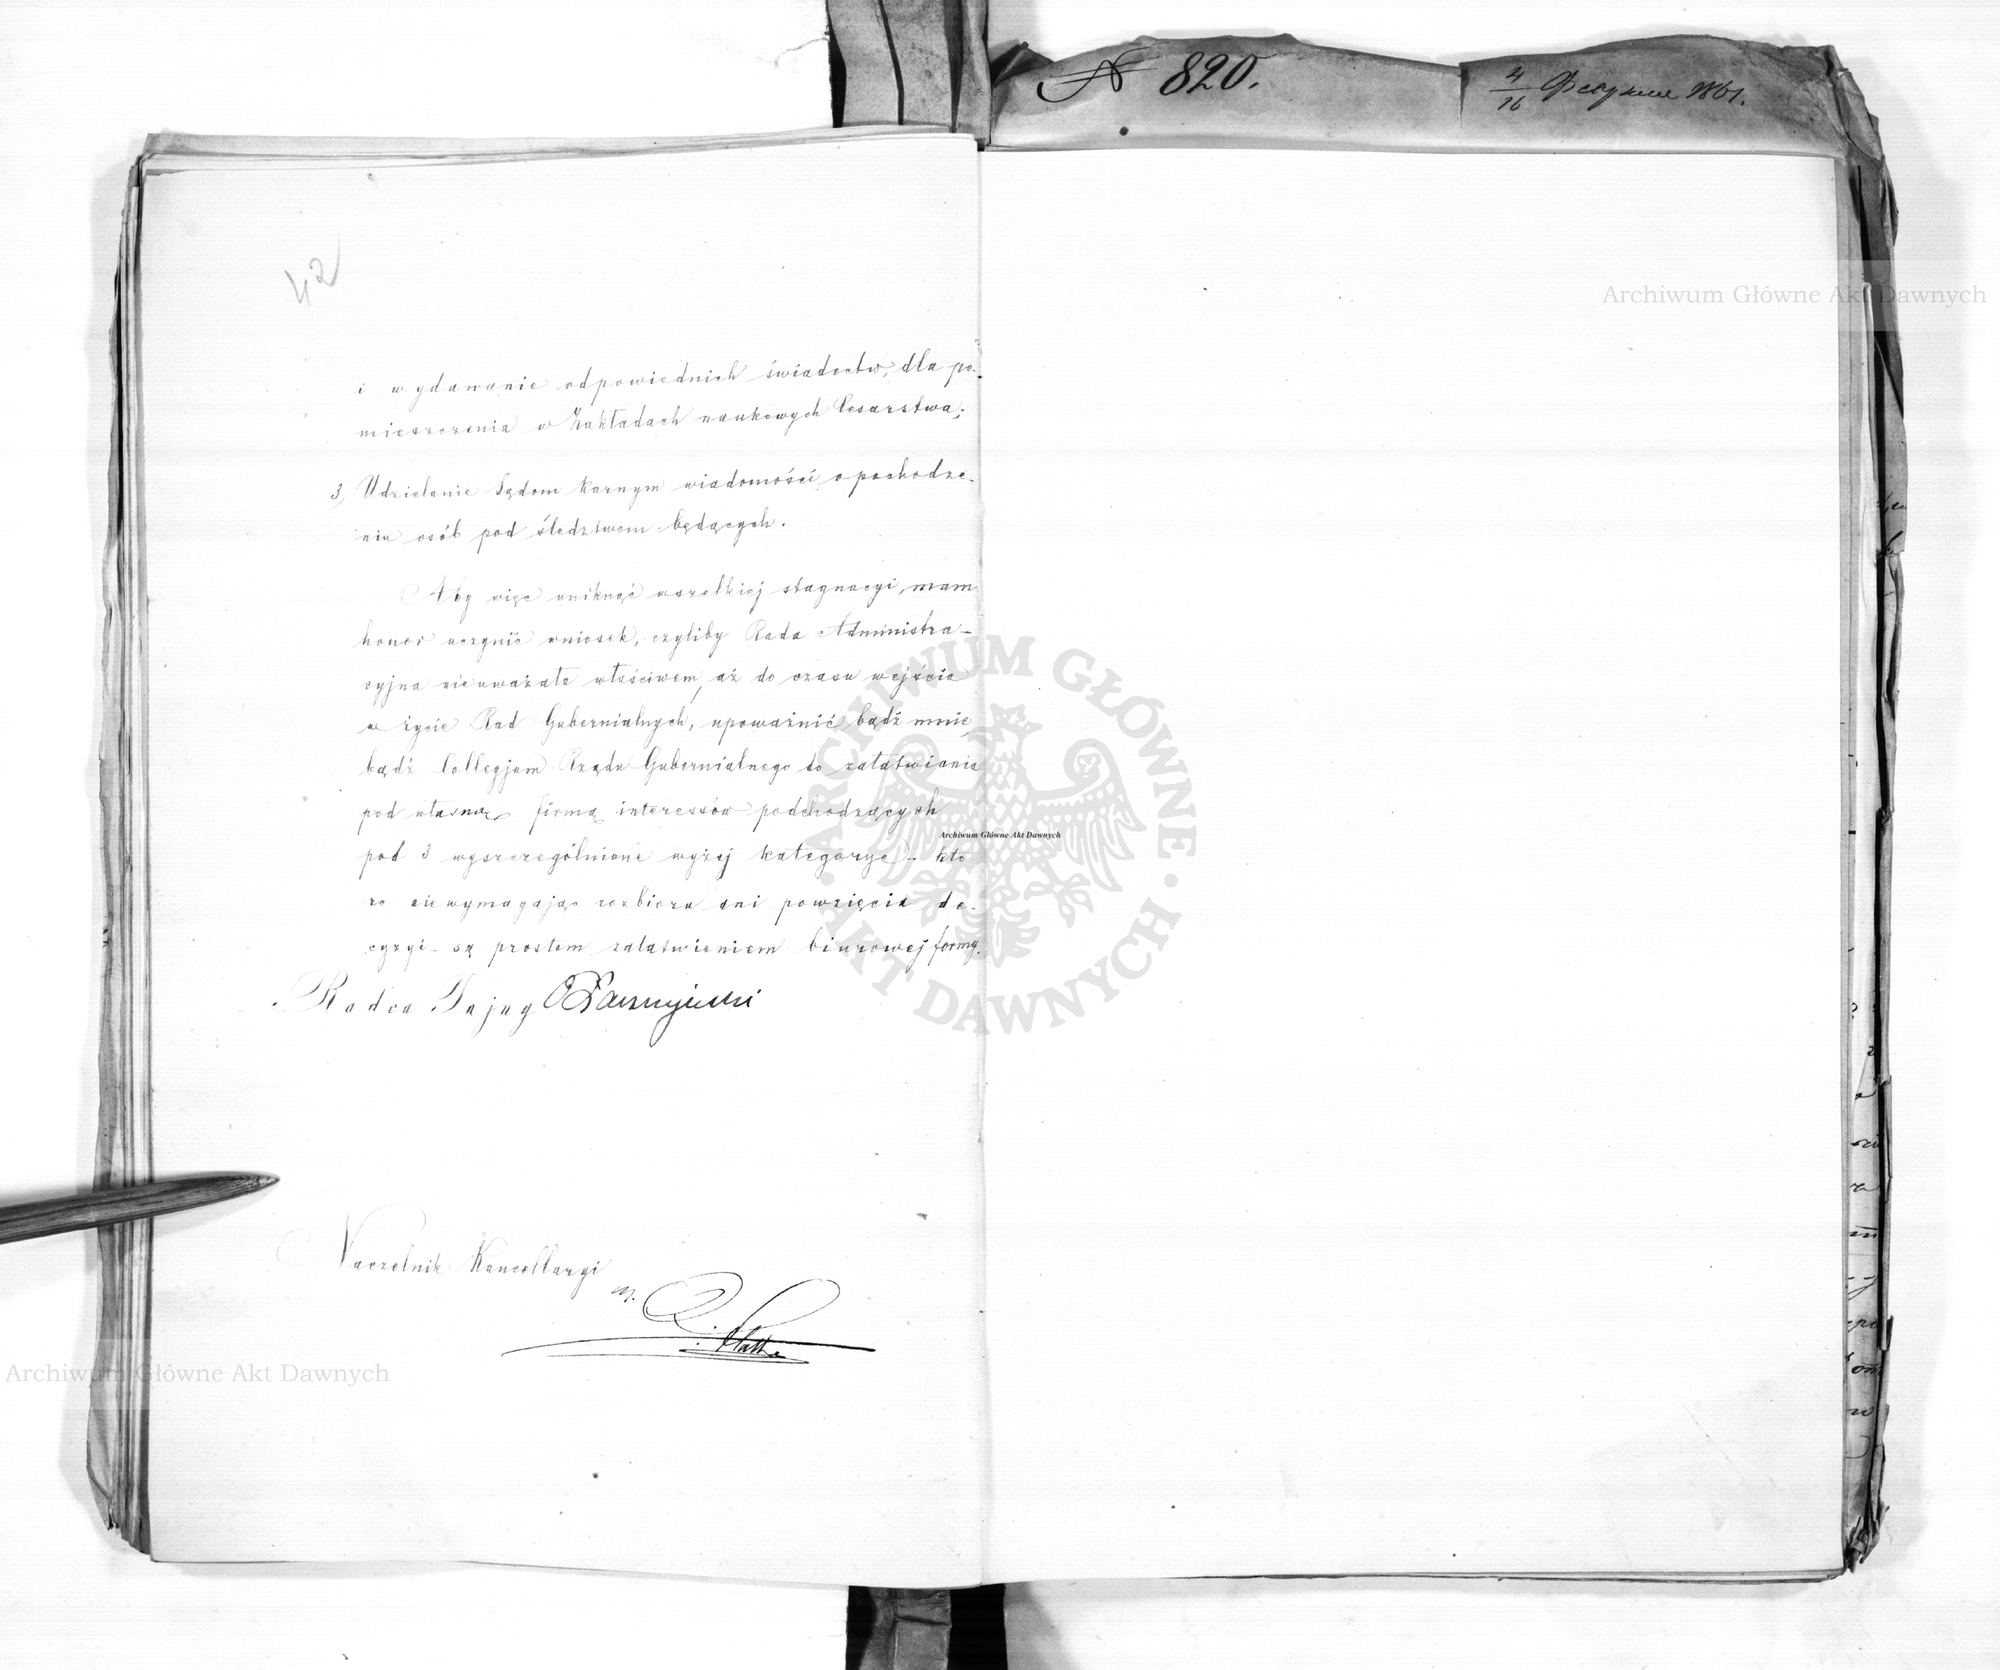 № 820.
4/16 1861.
42
i wydawanie odpowiednich świadectw, dla po-
mieszczenia w Zakładach naukowych Cesarstwa;
3, Udzielanie Sądom karnym wiadomości o pochodze-
niu osób pod śledztwem będących.
Aby więc uniknąć wszelkiej stagnacyi, mam
honor uczynić wniosek, czyliby Rada Administra-
cyjna nieuważała właściwem, aż do czasu wejścia
w życie Rad Gubernialnych, upoważnić bądź mnie,
bądź Collegjum Rządu Gubernialnego do załatwiania
pod własną firmą interessów podchodzących
pod 3 wyszczególnione wyżej kategorye - któ
re niewymagając rozbioru ani powzięcia de-
cyzyi - są prostem załatwieniem biurowej formy.
Radca Tajny
Naczelnik Kancellaryi
Archiwum Główne Akt Dawnych
Archiwum Główne Akt Dawnych
Archiwum Główne Akt Dawnych
ARCHIWUM GŁÓWNE AKT DAWNYCH